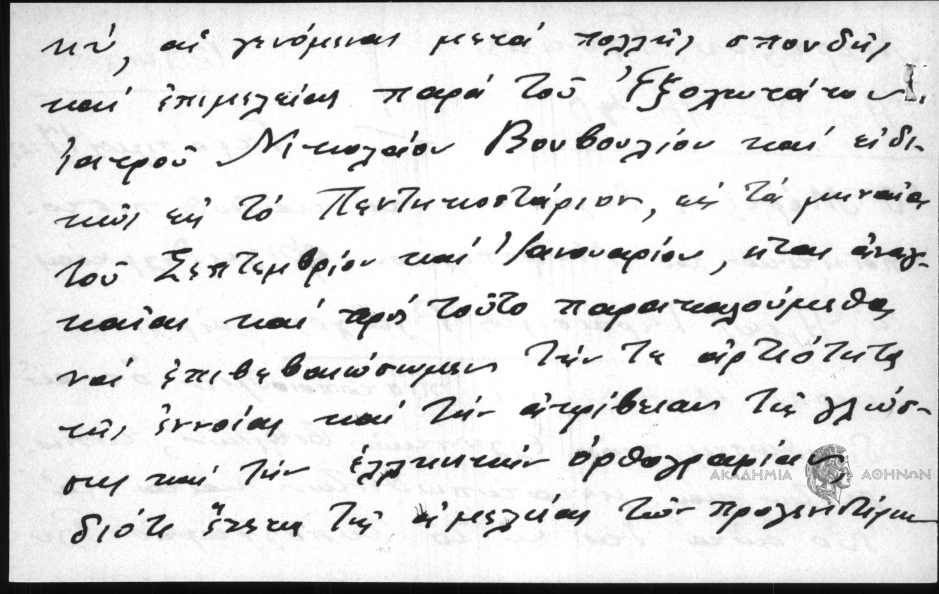 κύ, αἱ γενόμεναι μετά πολλῆς σπουδῆς
καί ἐπιμελείας παρά τοῦ Ἐξοχωτάτου
Ἰατροῦ Νικολάου Βουβουλίου καί εἰδι-
κῶς εἰς τό Πεντηκοστάριον, εἰς τά μηναῖα
τοῦ Σεπτεμβρίου καί Ἰανουαρίου, ἦταν ἀναγ-
καῖαι καί πρός τοῦτο παρακαλούμεθα
νά ἐπιβεβαιώσωμεν τήν τε ἀρτιότητα
τῆς ἐννοίας καί τήν ἀκρίβειαν τῆς γλώσ-
σης καί τήν ἑλληνικήν ὀρθογραφίαν,
διότι ἕνεκα τῆς ἀμελείας τῶν προγενεστέρων
ΑΚΑΔΗΜΙΑ ΑΘΗΝΩΝ